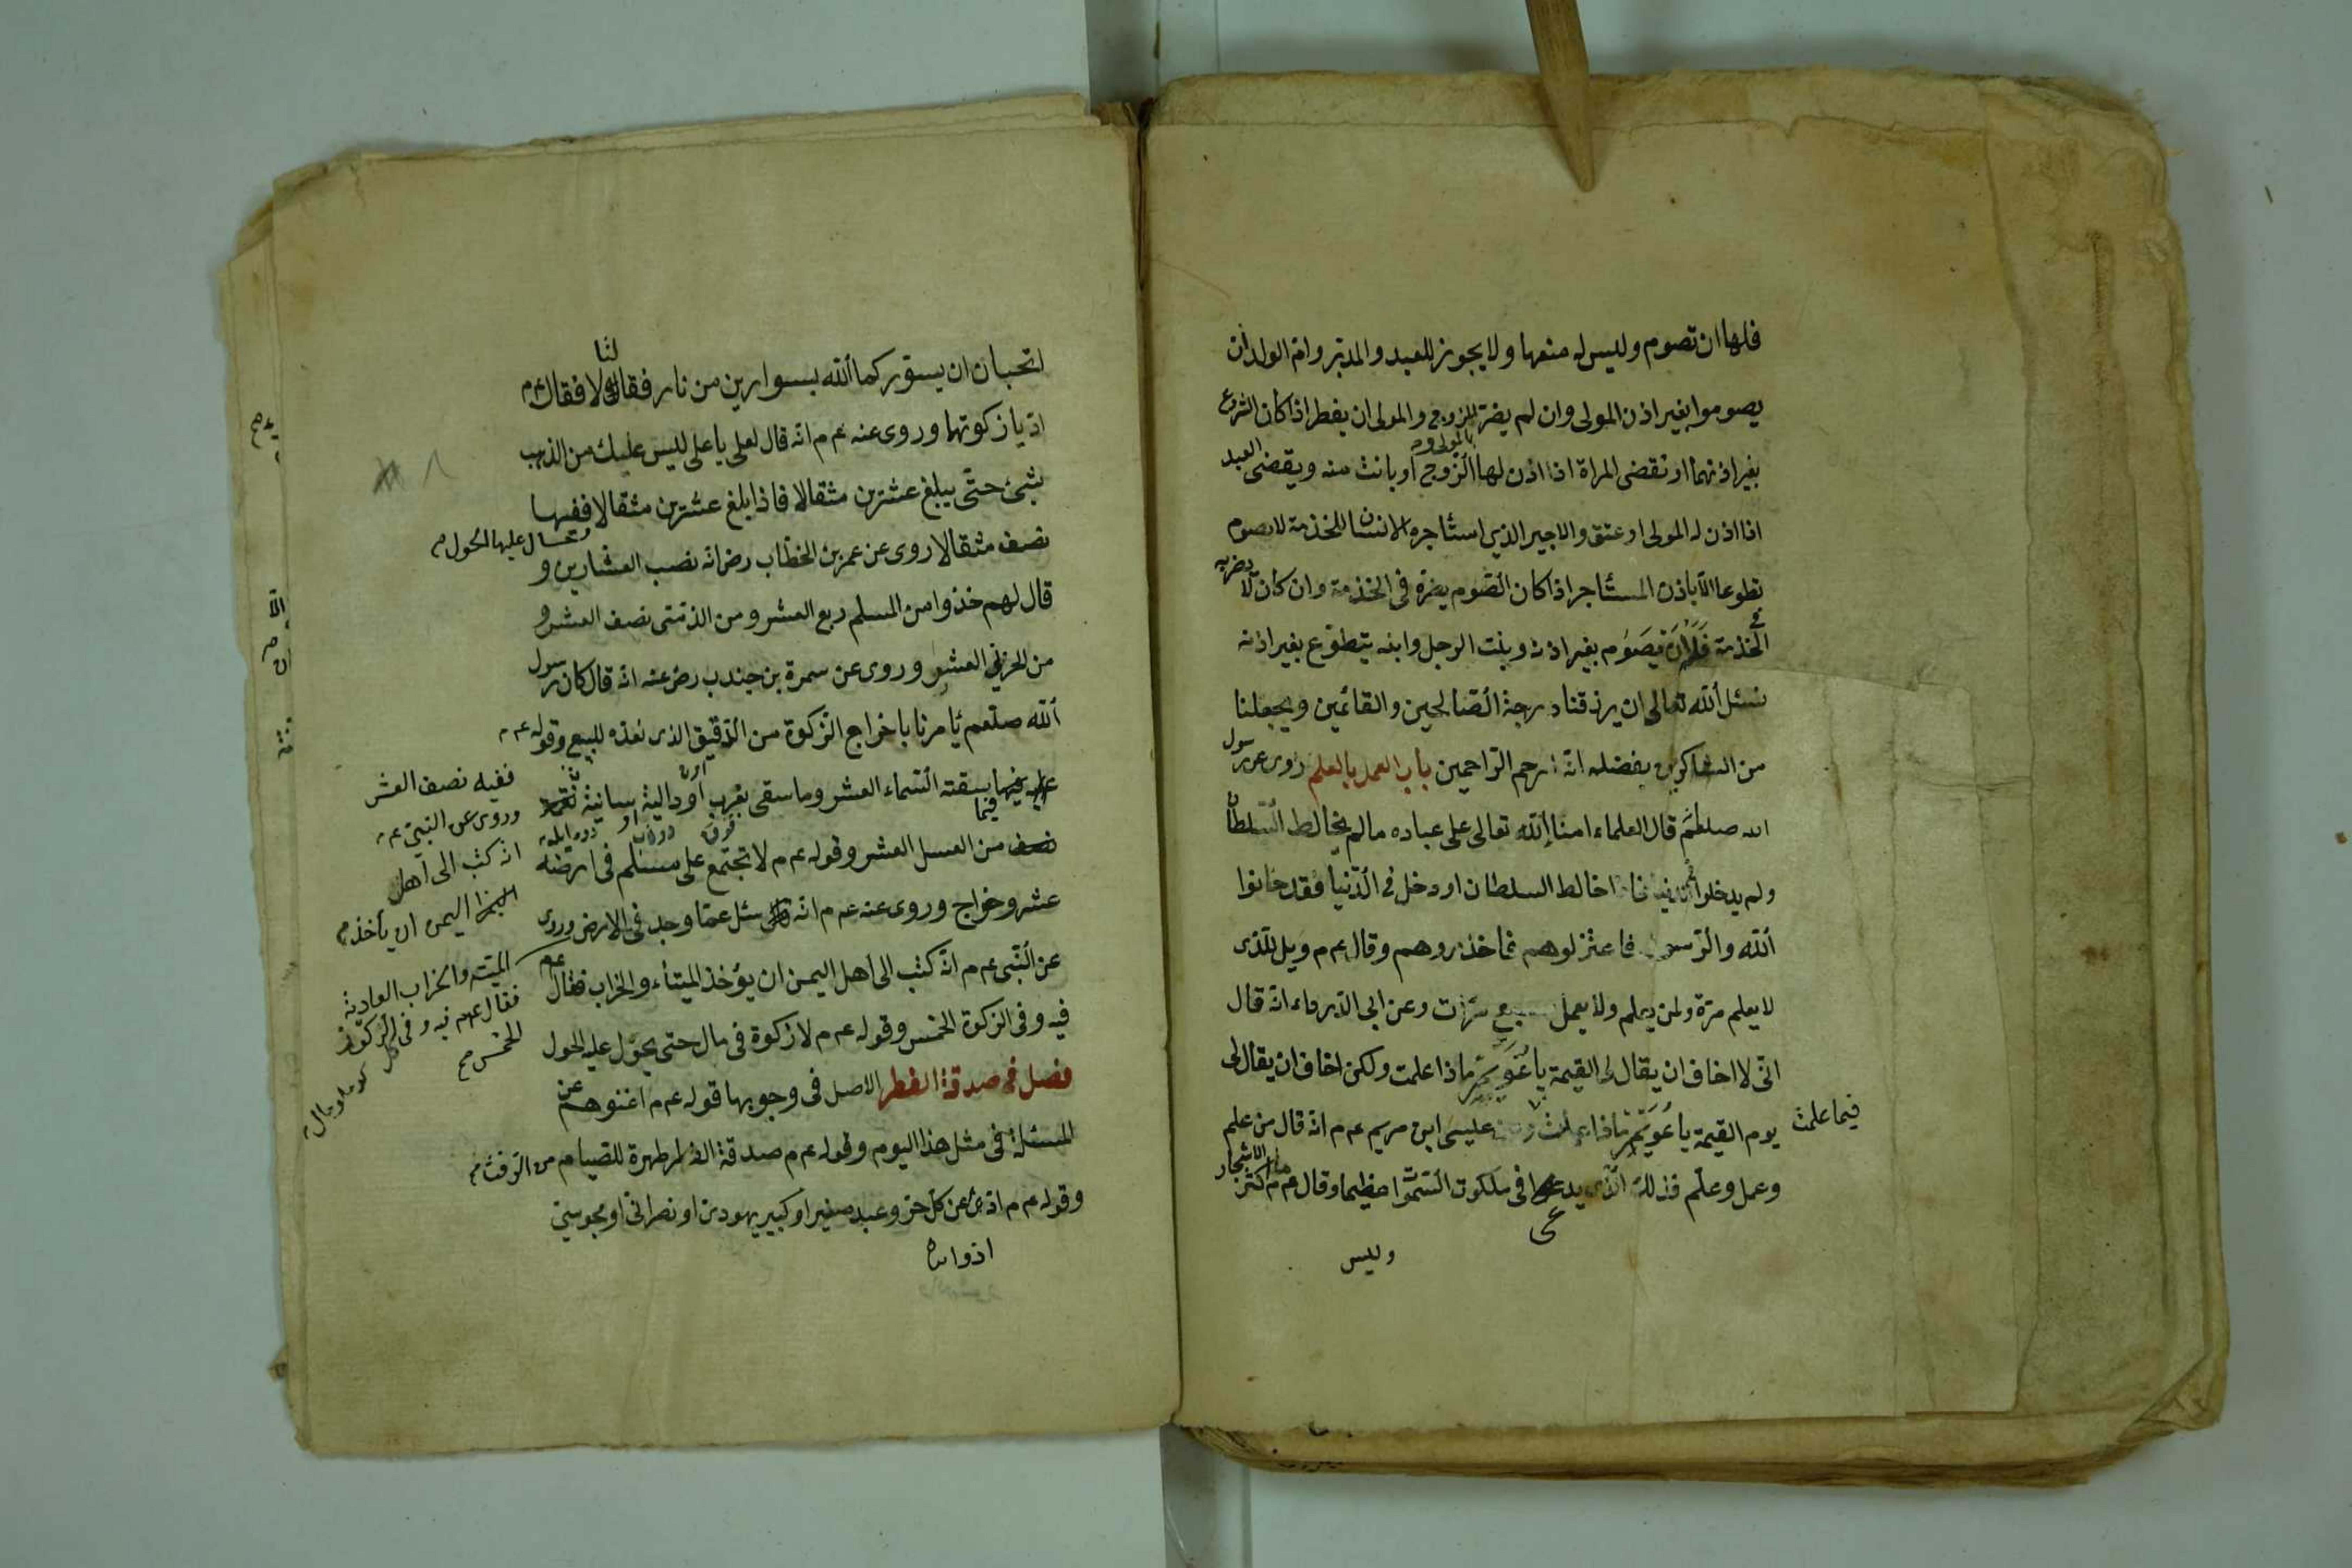 فلها ان تصوم وليس له منعها ولا يجوز للعبد والمدبر وام الولد ان
يصوموا بغير اذن المولى وان لم يضر للزوج والمولى ان يفطر اذا كان الشروع
بغير اذنهما او تقضى المراة اذا اذن لها الزوج او بانت منه ويقضى العبد
اذا اذن له المولى او عتق والاجير الذى استأجره الانسان للخذمة لا يصوم
تطوعا الا باذن المستأجر اذا كان الصوم يضره فى الخذمة وان كان لا يضر به
فى الخذمة فله ان يصوم بغير اذنه وبنت الرجل وابنه يتطوع بغير اذنه
نسئل الله تعالى ان يرزقنا درجة الصالحين والقائمين ويجعلنا
من الشاكرين بفضله انه ارحم الراحمين باب العمل بالعلم روى عن رسول
الله صلعم قال العلماء امناء الله تعالى على عباده ما لم يخالط السلطان
ولم يدخلوا فى الدنيا فاذا خالط السلطان او دخل فى الدنيا فقد خانوا
الله والرسول فاعتزلوهم فاحذروهم وقال عم م ويل للذى
لا يعلم مرة ولمن يعلم ولا يعمل سبع مرات وعن ابى الدرداء انه قال
انى لا اخاف ان يقال لى القيمة يا عويمر ماذا علمت ولكن اخاف ان يقال لى
يوم القيمة يا عويمر ماذا عملت فيما علمت عليسى ابن مريم عم م انه قال من علم
وعمل وعلم فذلك الذى يدعى فى ملكوت السموا عظيما وقال عم م ما اكثر الاشجار
وليس
اتحبان ان يستوركما الله بسوارين من نار فقالتا لا فقال عم
اديا زكوتها وروى عنه عم م انه قال لعلى يا على ليس عليك من الذهب
شئ حتى يبلغ عشرين مثقالا فاذا بلغ عشرين مثقالا ففيها
وحال عليها الحول
نصف مثقالا روى عن عمر بن الخطاب رض انه نصب العشارين و
قال لهم خذوا من المسلم ربع العشر ومن الذمى نصف العشر و
من الحربى العشر وروى عن سمرة بن جندب رض عنه انه قال كان رسول
الله صلعم يأمرنا باخراج الزكوة من الذقيق الذى نعده للبيع وقوله عم م
فيما سقته السماء العشر وما سقى بغرب او دالية او سانية
ففيه نصف العشر
وروى عن النبى عم
انه كتب الى اهل
اليمن ان يأخذ
من العسل العشر وقوله عم م لا تجتمع على مسلم فى ارضه
عشر وخراج وروى عنه عم م انه سئل عما وجد فى الارض وروى
عن النبى عم م انه كتب الى اهل اليمن ان يؤخذ الميتاء والخراب فقال عم
الميته والخراب العادية
فقال عم فيه وفى الركوز
الخمس
فيه وفى الزكوة الخمس وقوله عم م لا زكوة فى مال حتى يحول عليه الحول
فصل فى صدقة الفطر الاصل فى وجوبها قوله عم م اغنوهم عن
المسئلة فى مثل هذا اليوم وقوله عم م صدقة الفطر طهرة للصيام من الرفث
وقوله عم م اد عن كل حر وعبد صغير او كبير يهودى او نصرانى او مجوسى